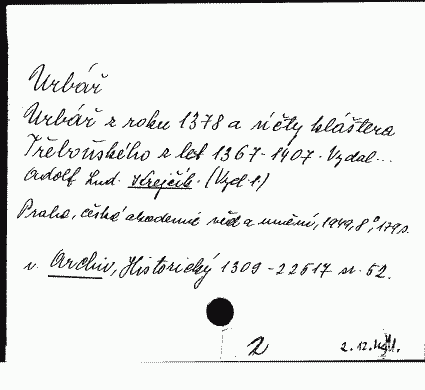 Urbář
Urbář z roku 1378 a účty kláštera
Třeboňského z let 1367-1407. Vydal...
Adolf Lud. Krejčík. (Vyd 1.)
Praha, česká akademie věd a umění, 1949, 8°, 179 s.
v. Archiv, Historický 1309-22517 sv. 52.
2
2.12.